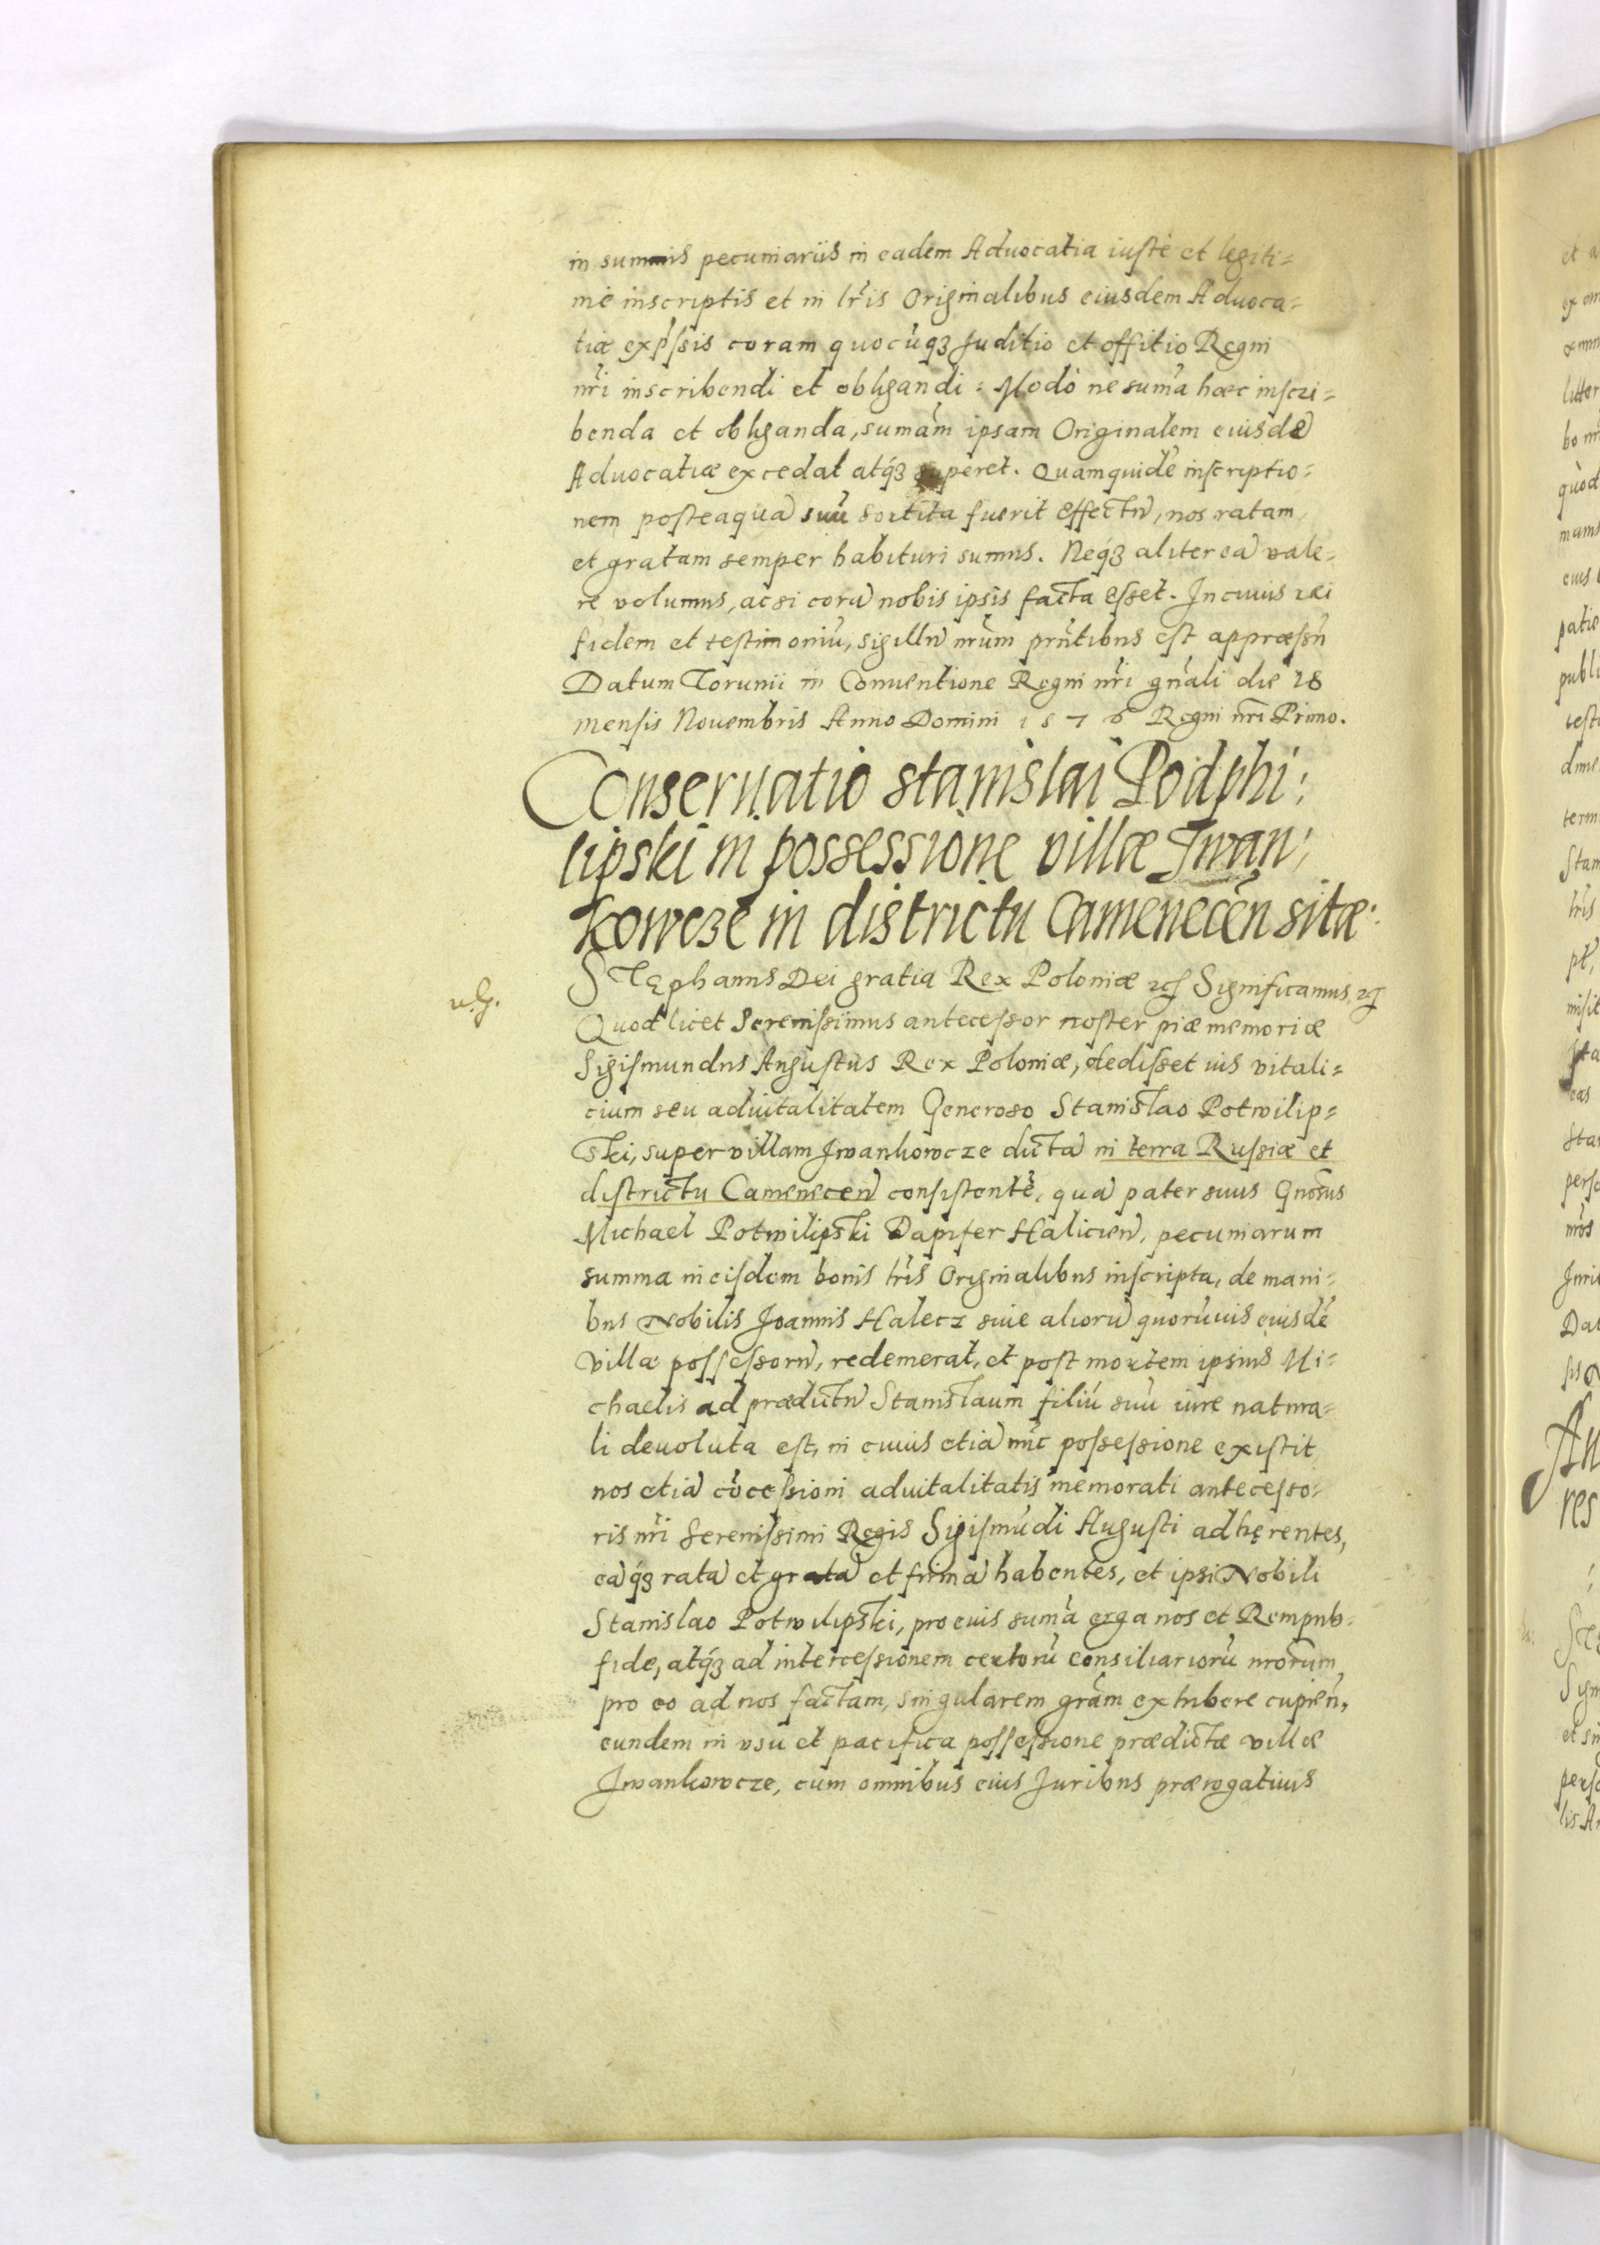 in summis pecuniariis in eadem Aduocatia iustè et legiti=
mè inscriptis et in lr̃is Originalibus eiusdem Aduoca=
tiæ exp̃ssis coram quocũqꝫ Juditio et offitio Regni
nr̃i inscribendi et obligandi: Modò ne sum̃a hæc inscri=
benda et obliganda, sum̃am ipsam Originalem eiusdẽ
Aduocatiæ excedat atqꝫ superet. Quamquidẽ inscriptio=
nem posteaquã suũ sortita fuerit effectũ, nos ratam
et gratam semper habituri sumus. Neqꝫ aliter eã vale=
re volumus, ac si corã nobis ipsis facta esset. In cuius rei
fidem et testimoniũ, sigillũ nr̃um pñtibus est appræssũ
Datum Torunii in Conuentione Regni nr̃i gñali die 28
mensis Nouembris Anno Domini 1576 Regni nr̃i Primo.
Conseruatio Stanislai Podphi:
lipski in possessione villæ Iwan,
kowcze in districtu Camenecẽn sitæ:
u.g.
Stephanus Dei gratia Rex Poloniæ ꝛcꝭ Significamus, ꝛcꝭ
Quod licet Serenissimus antecessor noster piæ memoriæ
Sigismundus Augustus Rex Poloniæ, dedisset ius vitali=
cium seu aduitalitatem Generoso Stanislao Potwilip=
ski, super villam Iwankowcze dictã in terra Russiæ et
districtu Camenecen̄ consistentẽ, quã pater suus Gñosus
Michael Potwilipski Dapifer Halicien̄, pecuniarum
summa in eisdem bonis lr̃is Originalibus inscripta, de mani=
bus Nobilis Joannis Halecz siue aliorũ quorũuis eiusdẽ
villæ possessorũ, redemerat, et post mortem ipsius Mi=
chaelis ad prædictũ Stanislaum filiũ suũ iure natura=
li deuoluta est, in cuius etiã nũc possessione existit
nos etiã cõcessioni aduitalitatis memorati antecesso=
ris nr̃i Serenissimi Regis Sigismũdi Augusti adhęrentes,
eãqꝫ ratã et gratã et firmã habentes, et ipsi Nobili
Stanislao Potwilipski, pro eius sum̃a erga nos et Rempub=
fide, atqꝫ ad intercessionem certorũ consiliariorũ nrõrum
pro eo ad nos factam, singularem grãm exhibere cupieñ,
eundem in vsu et pacifica possessione prædictæ villæ
Iwankowcze, cum omnibus eius Juribus prærogatiuis